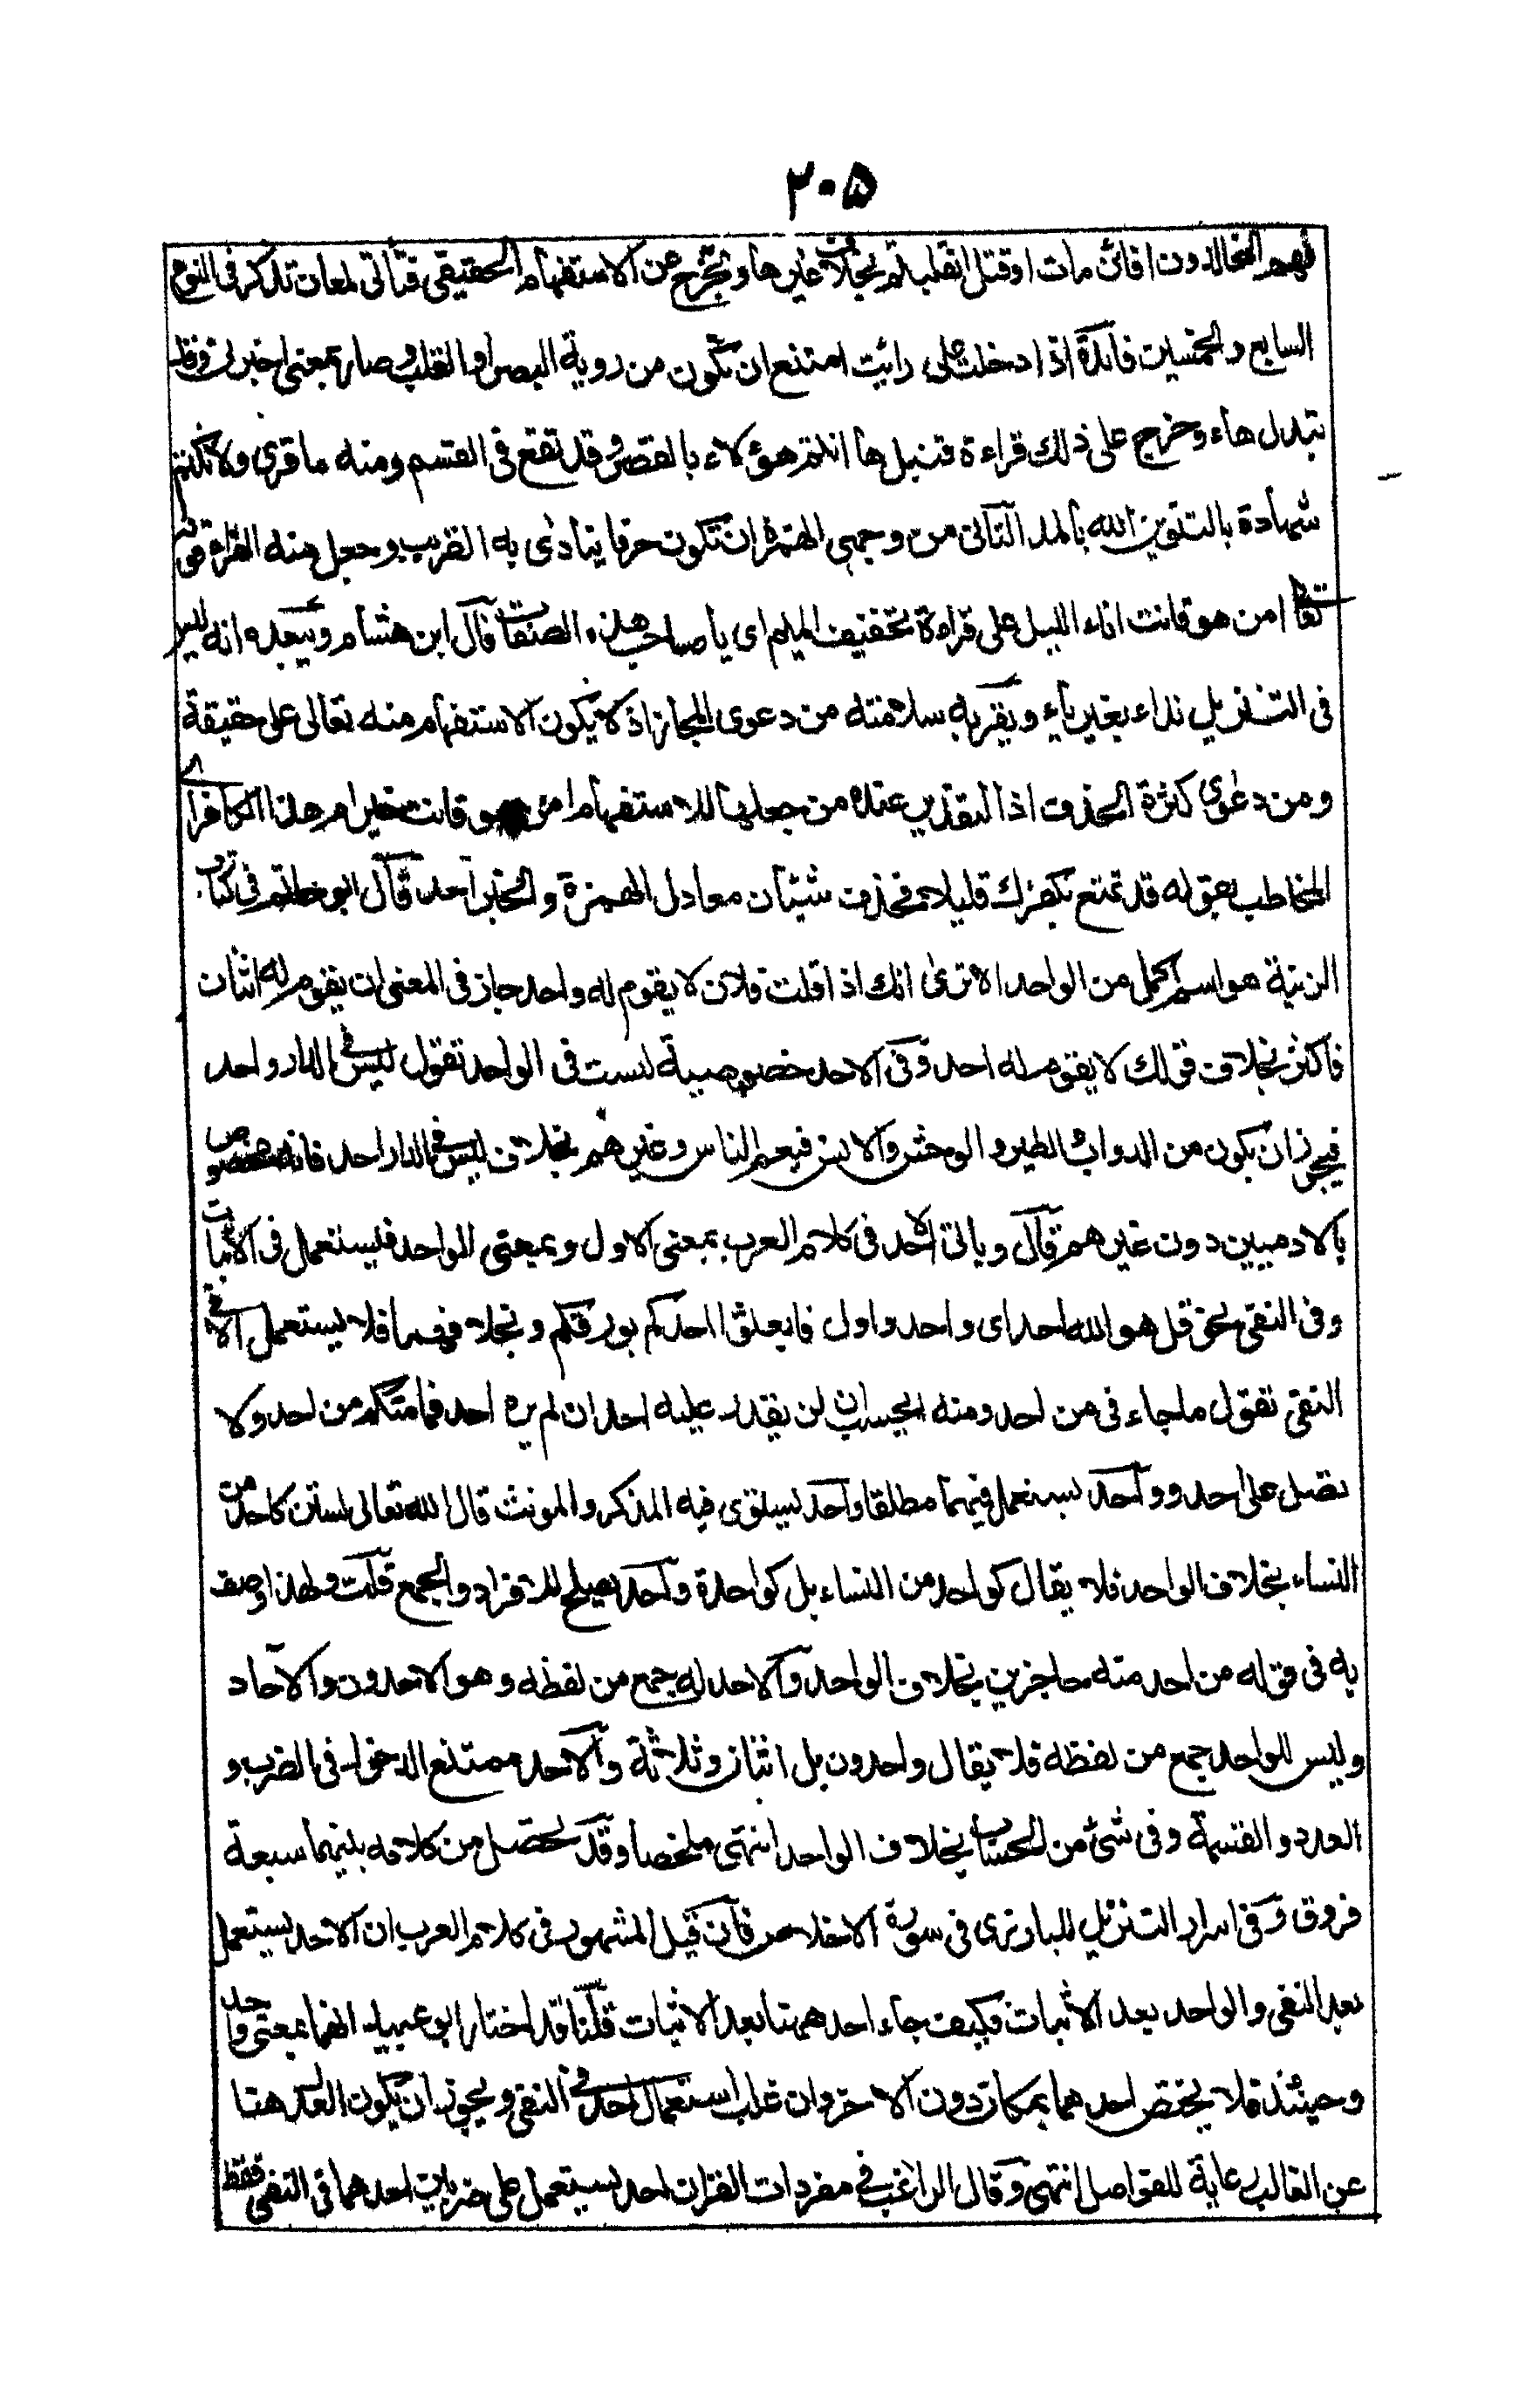 ٢٠٥
فهم الخالدون افائن مات او قتل انقلبتم بخلاف غيرها و تخرج عن الاستفهام الحقيقي فتأتي لمعان تذكر في النوع
السابع والخمسين فائدة اذا دخلت على رائيت امتنع ان تكون من روية البصر او القلب و صار بمعنى اخبرني وقد
تبدل هاء وخرج على ذلك قراءة قنبل ها انتم هؤلاء بالقصر وقد تقع في القسم ومنه ما قرئ ولا نكتم
شهادة بالتنوين الله بالمد الثاني من وجهي الهمزة ان تكون حرفا ينادى به القريب وجعل منه الفراء قوله
تعا امن هو قانت اناء الليل على قراءة تخفيف الميم اى يا صاحب هذه الصفات قال ابن هشام ويبعده انه ليس
في التنزيل نداء بغير ياء ويقربه سلامته من دعوى المجاز اذ لا يكون الاستفهام منه تعالى على حقيقة
ومن دعوى كثرة الحذف اذ التقدير عنده من جعلها للاستفهام امن هو قانت خير ام هذا الكافر اے
المخاطب بقوله قد تمتع بكفرك قليلا فحذف شيئان معادل الهمزة والخبر احد قال ابو حاتم في كتاب
الزينة هو اسم اكمل من الواحد الا ترى انك اذا قلت فلان لا يقوم له واحد جاز في المعنى ان يقوم له اثنان
فاكثر بخلاف قولك لا يقوم له احد وفي الاحد خصوصية ليست في الواحد تقول ليس في الدار واحد
فيجوز ان يكون من الدواب والطير والوحش والانس فيعم الناس وغيرهم بخلاف ليس في الدار احد فانه مخصوص
بالادميين دون غيرهم قال وياتي الاحد في كلام العرب بمعنى الاول وبمعنى الواحد فيستعمل في الاثبات
وفي النفي نحو قل هو الله احد اى واحد واول فابعثوا احدكم بورقكم وبخلافهما فلا يستعمل الا في
النفي تقول ما جاءني من احد ومنه ايحسب ان لن يقدر عليه احد ان لم يره احد فما منكم من احد ولا
تصل على احد وواحد يستعمل فيهما مطلقا واحد يستوى فيه المذكر والمونث قال الله تعالى لستن كاحد من
النساء بخلاف الواحد فلا يقال كواحد من النساء بل كواحدة واحد يصلح للافراد والجمع قلت ولهذا وصف
به في قوله من احد عنه حاجزين بخلاف الواحد والاحد له جمع من لفظه وهو الاحدون والآحاد
وليس للواحد جمع من لفظه فلا يقال واحدون بل اثنان وثلاثة والاحد ممتنع الدخول في الضرب و
العدد والقسمة وفي شئ من الحساب بخلاف الواحد انتهى ملخصا وقد تحصل من كلامه بينهما سبعة
فروق وفي اسرار التنزيل للبارزى في سورة الاخلاص فان قيل المشهور في كلام العرب ان الاحد يستعمل
بعد النفي والواحد بعد الاثبات فكيف جاء احد هنا بعد الاثبات قلنا قد اختار ابو عبيد انهما بمعنى واحد
وحينئذ فلا يختص احدهما بمكان دون الاخر وان غلب استعمال احد في النفي ويجوز ان يكون العدول هنا
عن الغالب رعاية للفواصل انتهى وقال الراغب في مفردات القران احد يستعمل على ضربين احدهما في النفي فقط